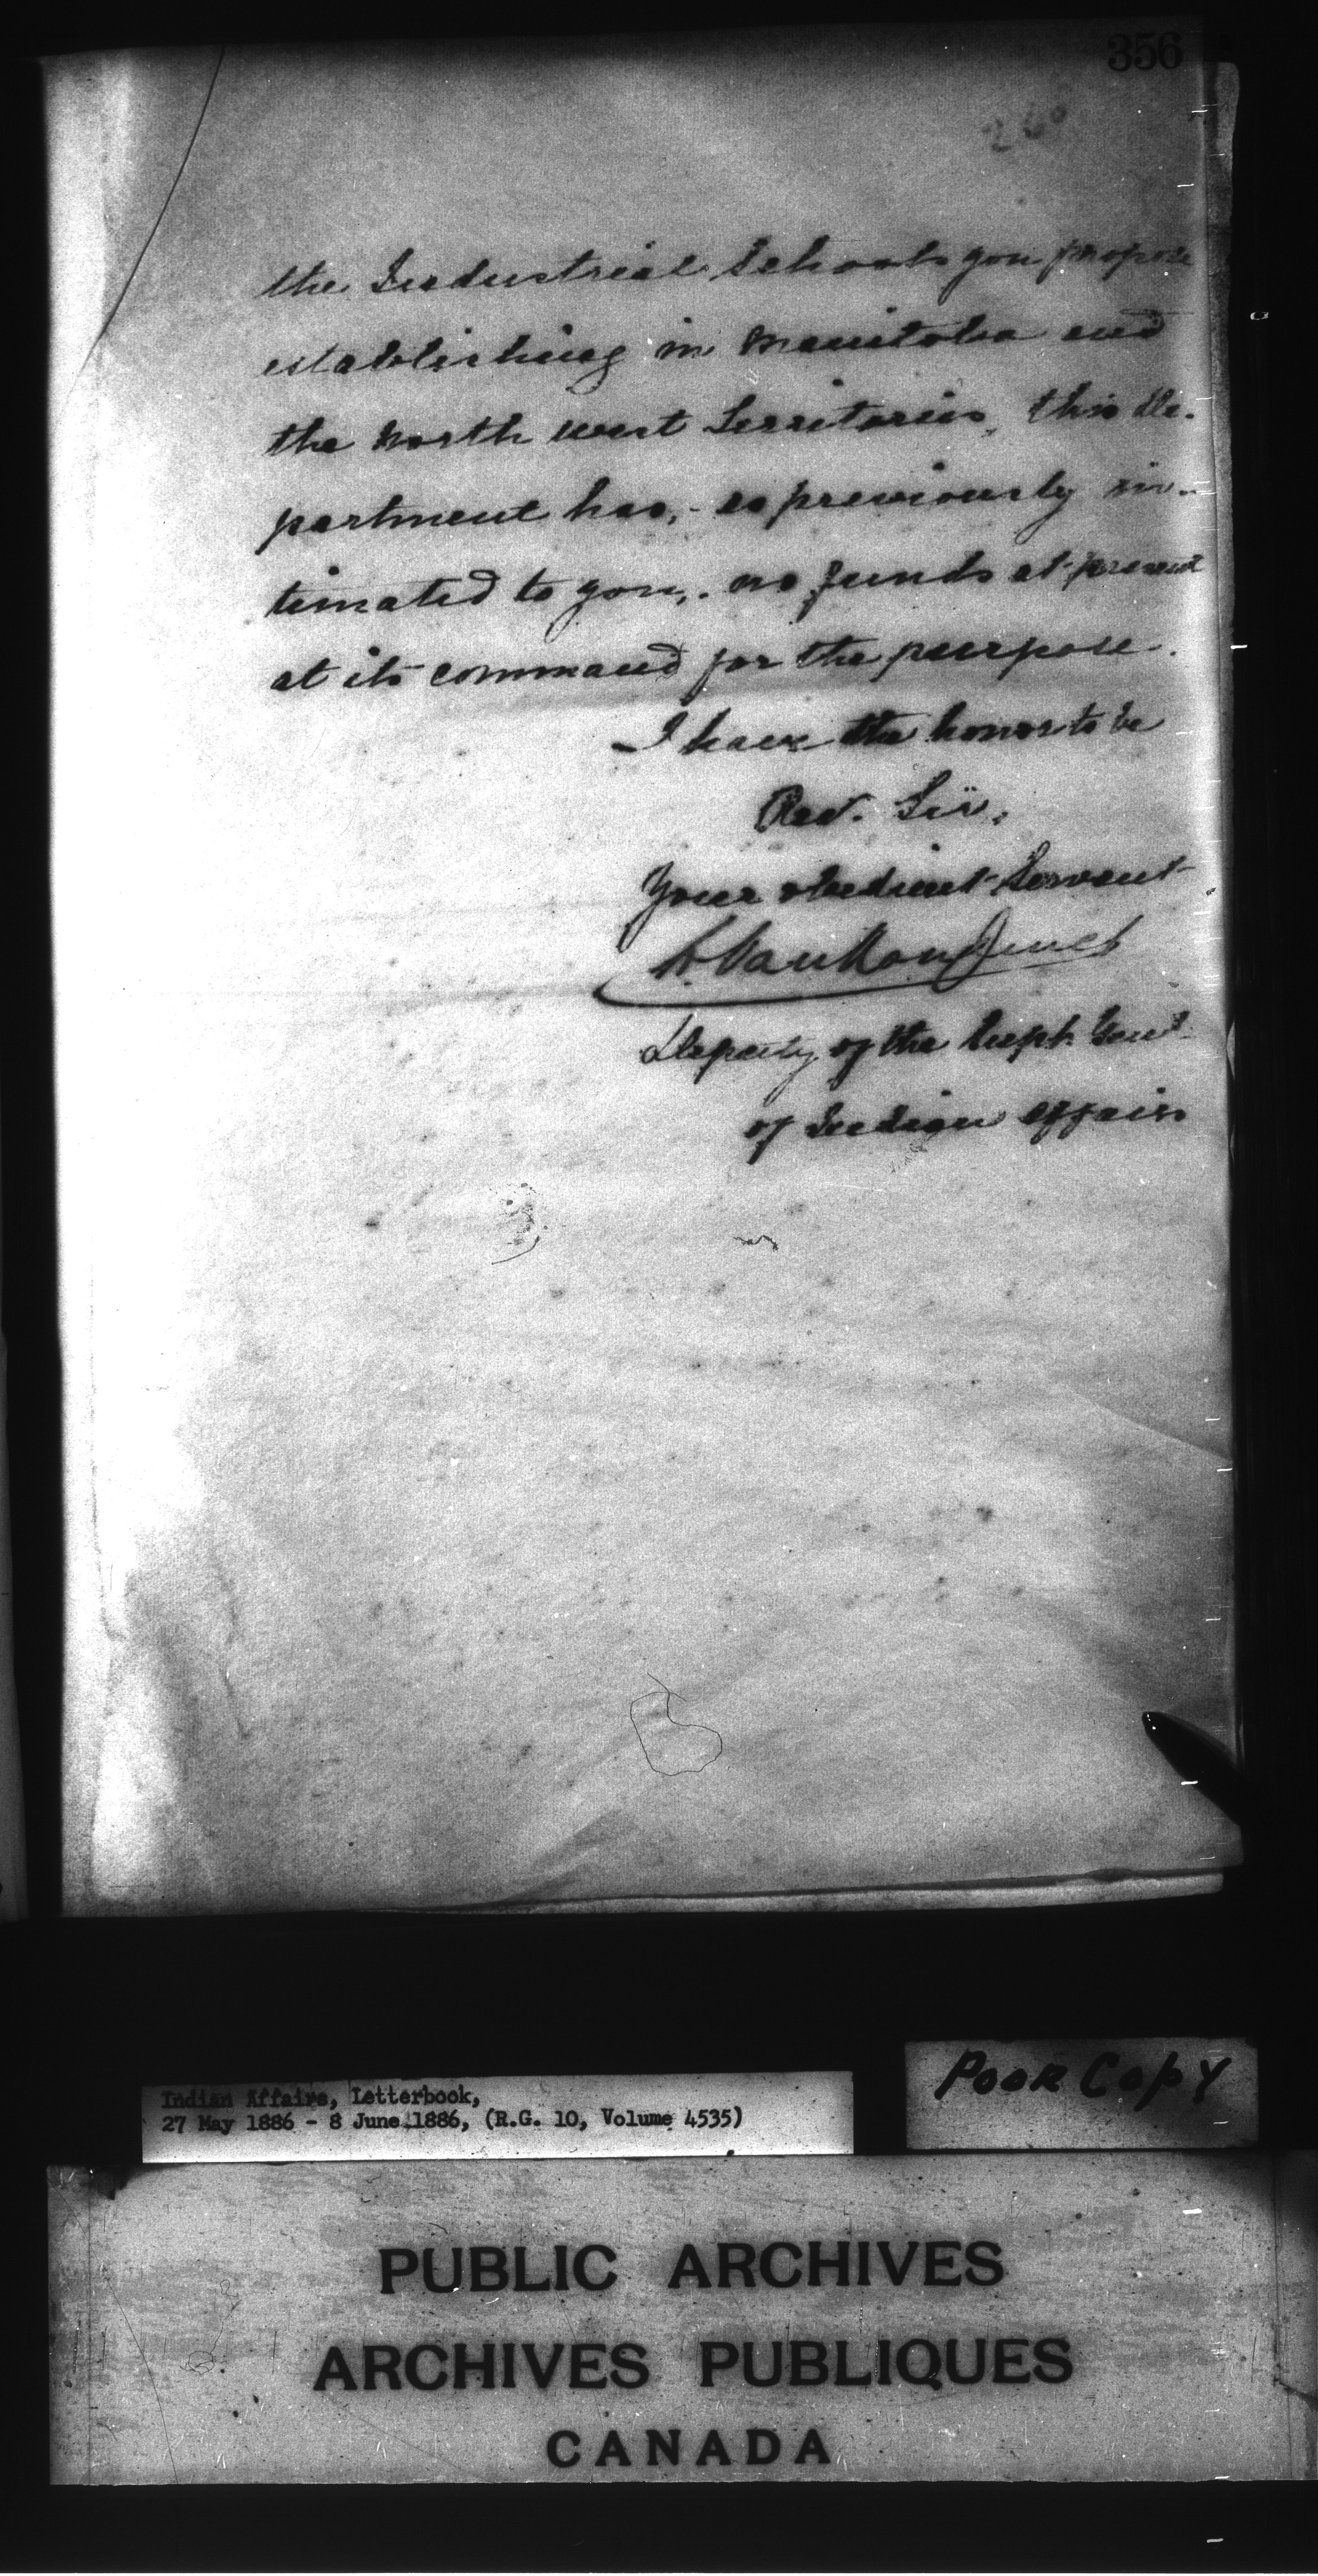 356
266
the Industrial Schools you propose
establishing in Manitoba and
the North west Territories, this De-
partment has, - as previously in-
timated to you, - no funds at present
at its command for the purpose.
I have the honor to be
Rev. Sir,
Your obedient Servant
L. VanKoughnet
Deputy of the Supt. Genl.
of Indian Affairs
Poor Copy
Indian Affairs, Letterbook,
27 May 1886 - 8 June 1886, (R.G. 10, Volume 4535)
PUBLIC ARCHIVES
ARCHIVES PUBLIQUES
CANADA